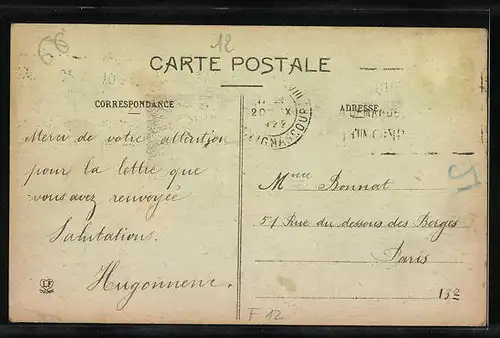 66
12
CARTE POSTALE
CORRESPONDANCE
ADRESSE
Merci de votre attention
pour la lettre que
vous avez renvoyée
Salutations.
Hugonnenc.
Mme Bonnat
51 Rue du dessous des Berges
Paris
132
LF
F 12